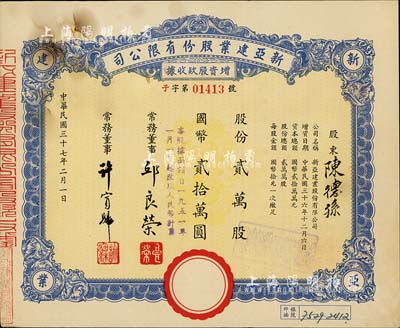 新亞建業股份有限公司
增資股款收據
子字第 01413 號
股東 陳德孫
公司名稱 新亞建業股份有限公司
增資日期 中華民國三十六年十二月六日
資本總額 國幣貳拾萬萬元
股份總額 貳萬萬股
每股金額 國幣拾元一次繳足
股份 貳萬股
國幣 貳拾萬圓
常務董事 邱良榮
常務董事
中華民國三十七年二月一日
新
建
亞
業
7529-2412